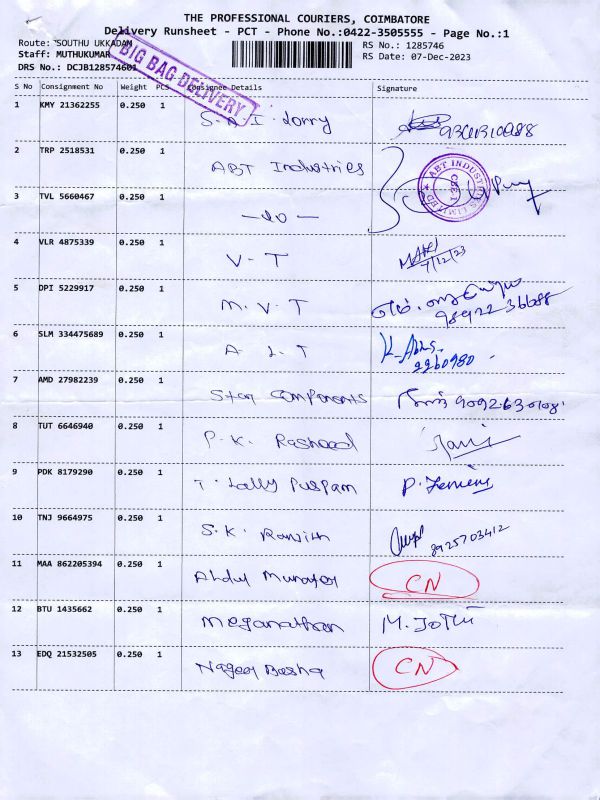 THE PROFESSIONAL COURIERS, COIMBATORE
Delivery Runsheet - PCT - Phone No.:0422-3505555 - Page No.:1
Route: SOUTHU UKKADAM
RS No.: 1285746
Staff: MUTHUKUMAR
RS Date: 07-Dec-2023
DRS No.: DCJB128574601
BIG BAG DELIVERY
S No Consignment No Weight PCS Consignee Details Signature
1 KMY 21362255 0.250 1 S.A.I. Lorry
2 TRP 2518531 0.250 1 ABT Industries
ABT INDUSTRIES LIMITED
CBE-1
3 TVL 5660467 0.250 1 -do-
4 VLR 4875339 0.250 1 V-T 7/12/23
5 DPI 5229917 0.250 1 M.V.T 98422 36688
6 SLM 334475689 0.250 1 A.L.T
2260980
7 AMD 27982239 0.250 1 Star Components
8 TUT 6646940 0.250 1 P.K. Rasheed
9 PDK 8179290 0.250 1 T. Lally Puspam
10 TNJ 9664975 0.250 1 S.K. Ranjith 8925703412
11 MAA 862205394 0.250 1 Abdul CN
12 BTU 1435662 0.250 1 Meganathan M. Jothi
13 EDQ 21532505 0.250 1 Nageer Basha CN